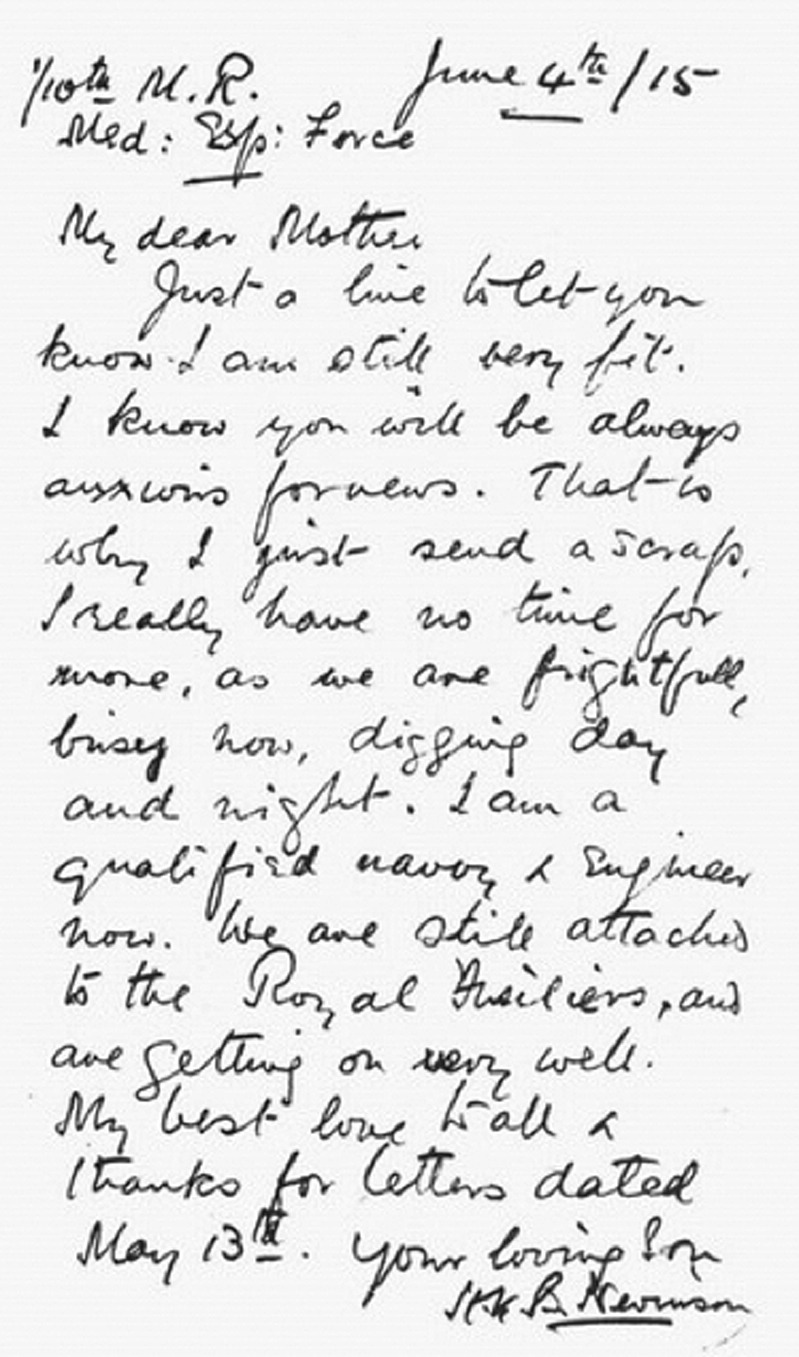 1/10th M.R. June 4th/15
Med: Exp: Force
My dear Mother
Just a line to let you
know I am still very fit.
I know you will be always
anxious for news. That is
why I just send a scrap,
I really have no time for
more, as we are frightfully
busy now, digging day
and night. I am a
qualified navvy & Engineer
now. We are still attached
to the Royal Fusiliers, and
are getting on very well.
My best love to all &
thanks for letters dated
May 13th. Your loving Son